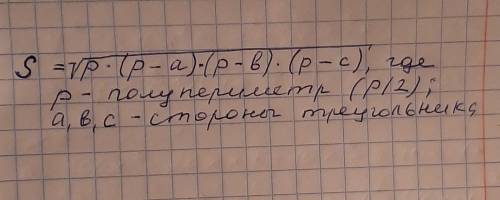 S = √p·(p-a)·(p-в)·(p-c), где
p - полупериметр (P/2);
a, в, c - стороны треугольника